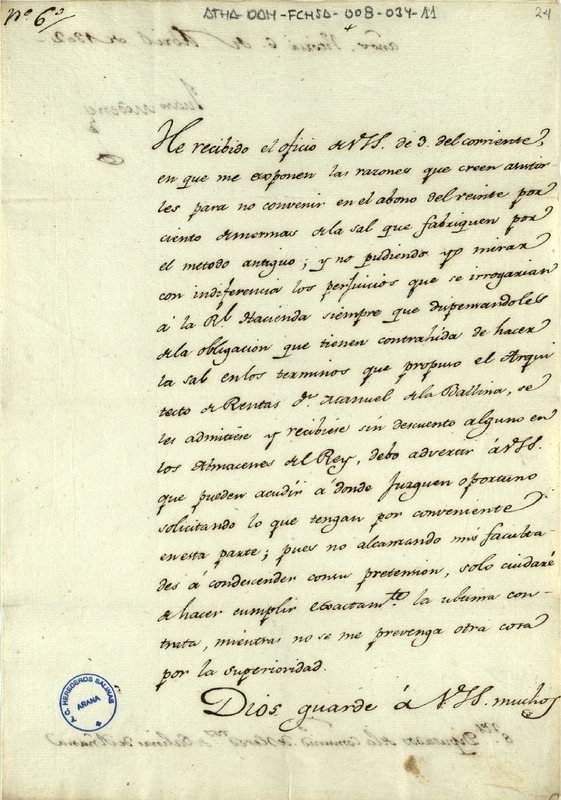 Nº 6º
ATHA-DAH-FCHSA-008-034-11
24
He recibido el oficio de VSS. de 3. del corriente,
en que me exponen las razones que creen asistir
les para no convenir en el abono del veinte por
ciento de mermas de la sal que fabriquen por
el metodo antiguo; y no pudiendo yo mirar
con indiferencia los perjuicios que se irrogarian
á la Rl. Hacienda siempre que dispensandoles
de la obligacion que tienen contrahida de hacer
la sal en los terminos que propuso el Arqui
tecto de Rentas Dn. Manuel de la Ballina, se
les admitiese y recibiese sin descuento alguno en
los Almacenes del Rey, debo advertir á VSS.
que pueden acudir á donde juzguen oportuno
solicitando lo que tengan por conveniente
en esta parte; pues no alcanzando mis faculta-
des á condescender con su pretension, solo cuidaré
de hacer cumplir exactamte. la ultima con-
trata, mientras no se me prevenga otra cosa
por la superioridad.
Dios guarde á VSS. muchos
T. C. HEREDEROS SALINAS
ARANA